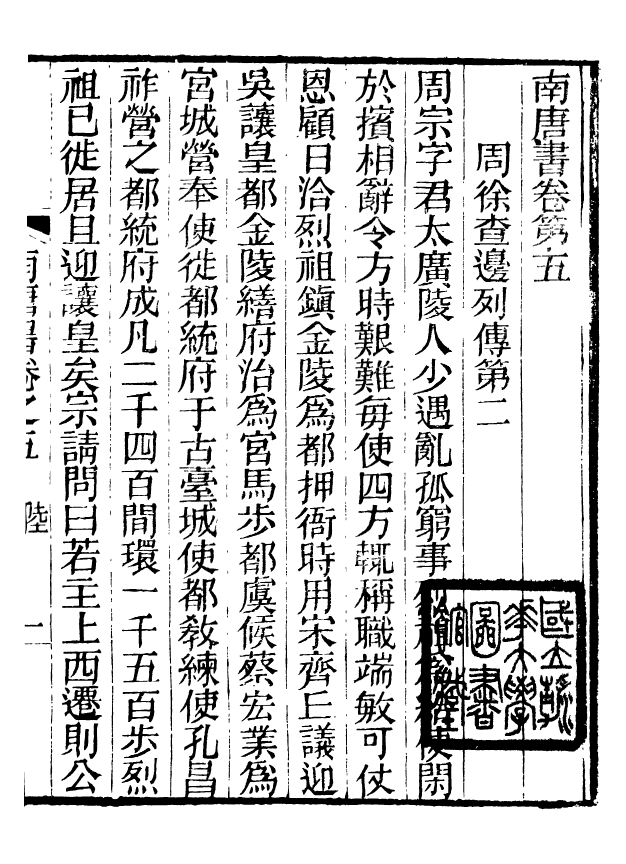 南唐書卷第五
周徐查邊列傳第二
周宗字君太廣陵人少遇亂孤窮事烈祖爲給使閑
於擯相辭令方時艱難每使四方輒稱職端敏可仗
恩顧日洽烈祖鎭金陵爲都押衙時用宋齊丘議迎
吳讓皇都金陵繕府治爲宮馬步都虞候蔡宏業爲
宮城營奉使徙都統府于古臺城使都敎練使孔昌
祚營之都統府成凡二千四百間環一千五百步烈
祖已徙居且迎讓皇矣宗請問曰若主上西遷則公
南唐書卷之五 陸 一
國立
大學
圖書
館藏